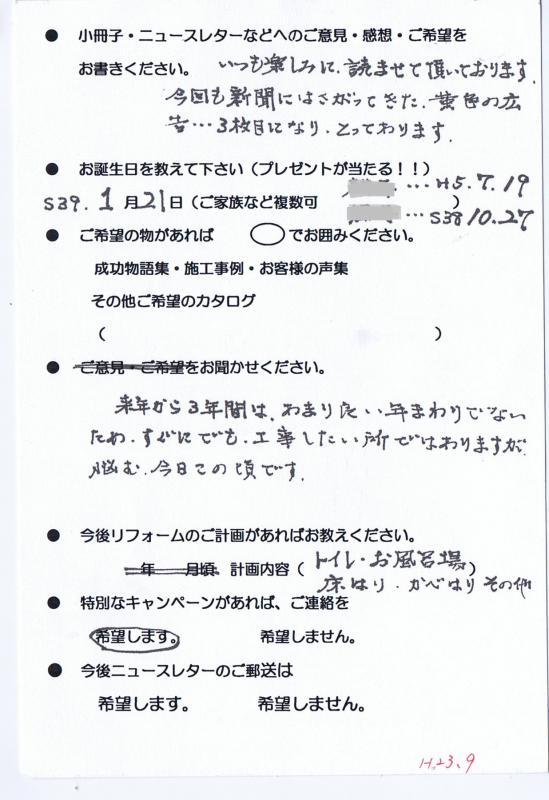 ● 小冊子・ニュースレターなどへのご意見・感想・ご希望を
お書きください。 いつも楽しみに、読ませて頂いております。
今回も新聞にはさがってきた、黄色の広
告…3枚目になり、とってあります。
● お誕生日を教えて下さい（プレゼントが当たる！！）
…H5.7.19
S39. 1月21日（ご家族など複数可 …S38 10.27 ）
● ご希望の物があれば ◯でお囲みください。
成功物語集・施工事例・お客様の声集
その他ご希望のカタログ
（ ）
● ご意見・ご希望をお聞かせください。
来年から3年間は、あまり良い年まわりでない
ため、すぐにでも、工事したい所ではありますが、
脳む、今日この頃です。
● 今後リフォームのご計画があればお教えください。
年 月頃 計画内容（ トイレ・お風呂場 ）
床はり、かべはり その他
● 特別なキャンペーンがあれば、ご連絡を
希望します。 希望しません。
● 今後ニュースレターのご郵送は
希望します。 希望しません。
H.23.9